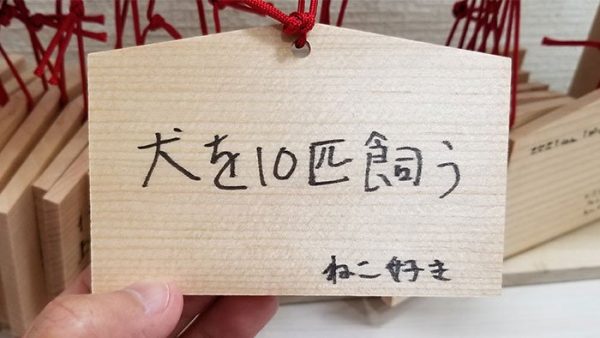 犬を10匹飼う
ねこ好き